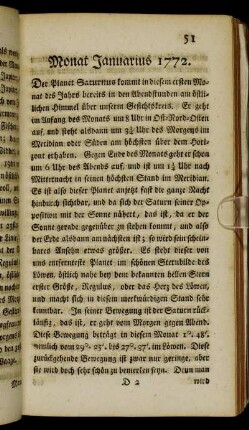 51
Monat Januarius 1772.
Der Planet Saturnus kommt in diesem ersten Mo-
nat des Jahrs bereits in den Abendstunden am öst-
lichen Himmel über unsern Gesichtskreis. Er geht
im Anfang des Monats um 8 Uhr in Ost-Nord-Osten
auf, und steht alsdann um 3¾ Uhr des Morgens im
Meridian oder Süden am höchsten über dem Hori-
zont erhaben. Gegen Ende des Monats geht er schon
um 6 Uhr des Abends auf, und ist um 1¾ Uhr nach
Mitternacht in seinen höchsten Stand im Meridian.
Es ist also dieser Planet anjetzt fast die ganze Nacht
hindurch sichtbar, und da sich der Saturn seiner Op-
position mit der Sonne nähert, das ist, da er der
Sonne gerade gegenüber zu stehen kommt, und also
der Erde alsdann am nächsten ist; so wird sein schein-
bares Ansehen etwas größer. Es steht dieser von
uns entfernteste Planet im schönen Sternbilde des
Löwen, östlich nahe bey dem bekannten hellen Stern
erster Größe, Regulus, oder das Herz des Löwen,
und macht sich in diesem merkwürdigen Stand sehr
kenntbar. In seiner Bewegung ist der Saturn rück-
läufig, das ist, er geht vom Morgen gegen Abend.
Diese Bewegung beträgt in diesem Monat 1°. 48'.
nemlich vom 29°. 25'. bis 27°. 37'. im Löwen. Diese
zurückgehende Bewegung ist zwar nur geringe, aber
sie wird doch sehr schön zu bemerken seyn. Denn man
D 2 wird